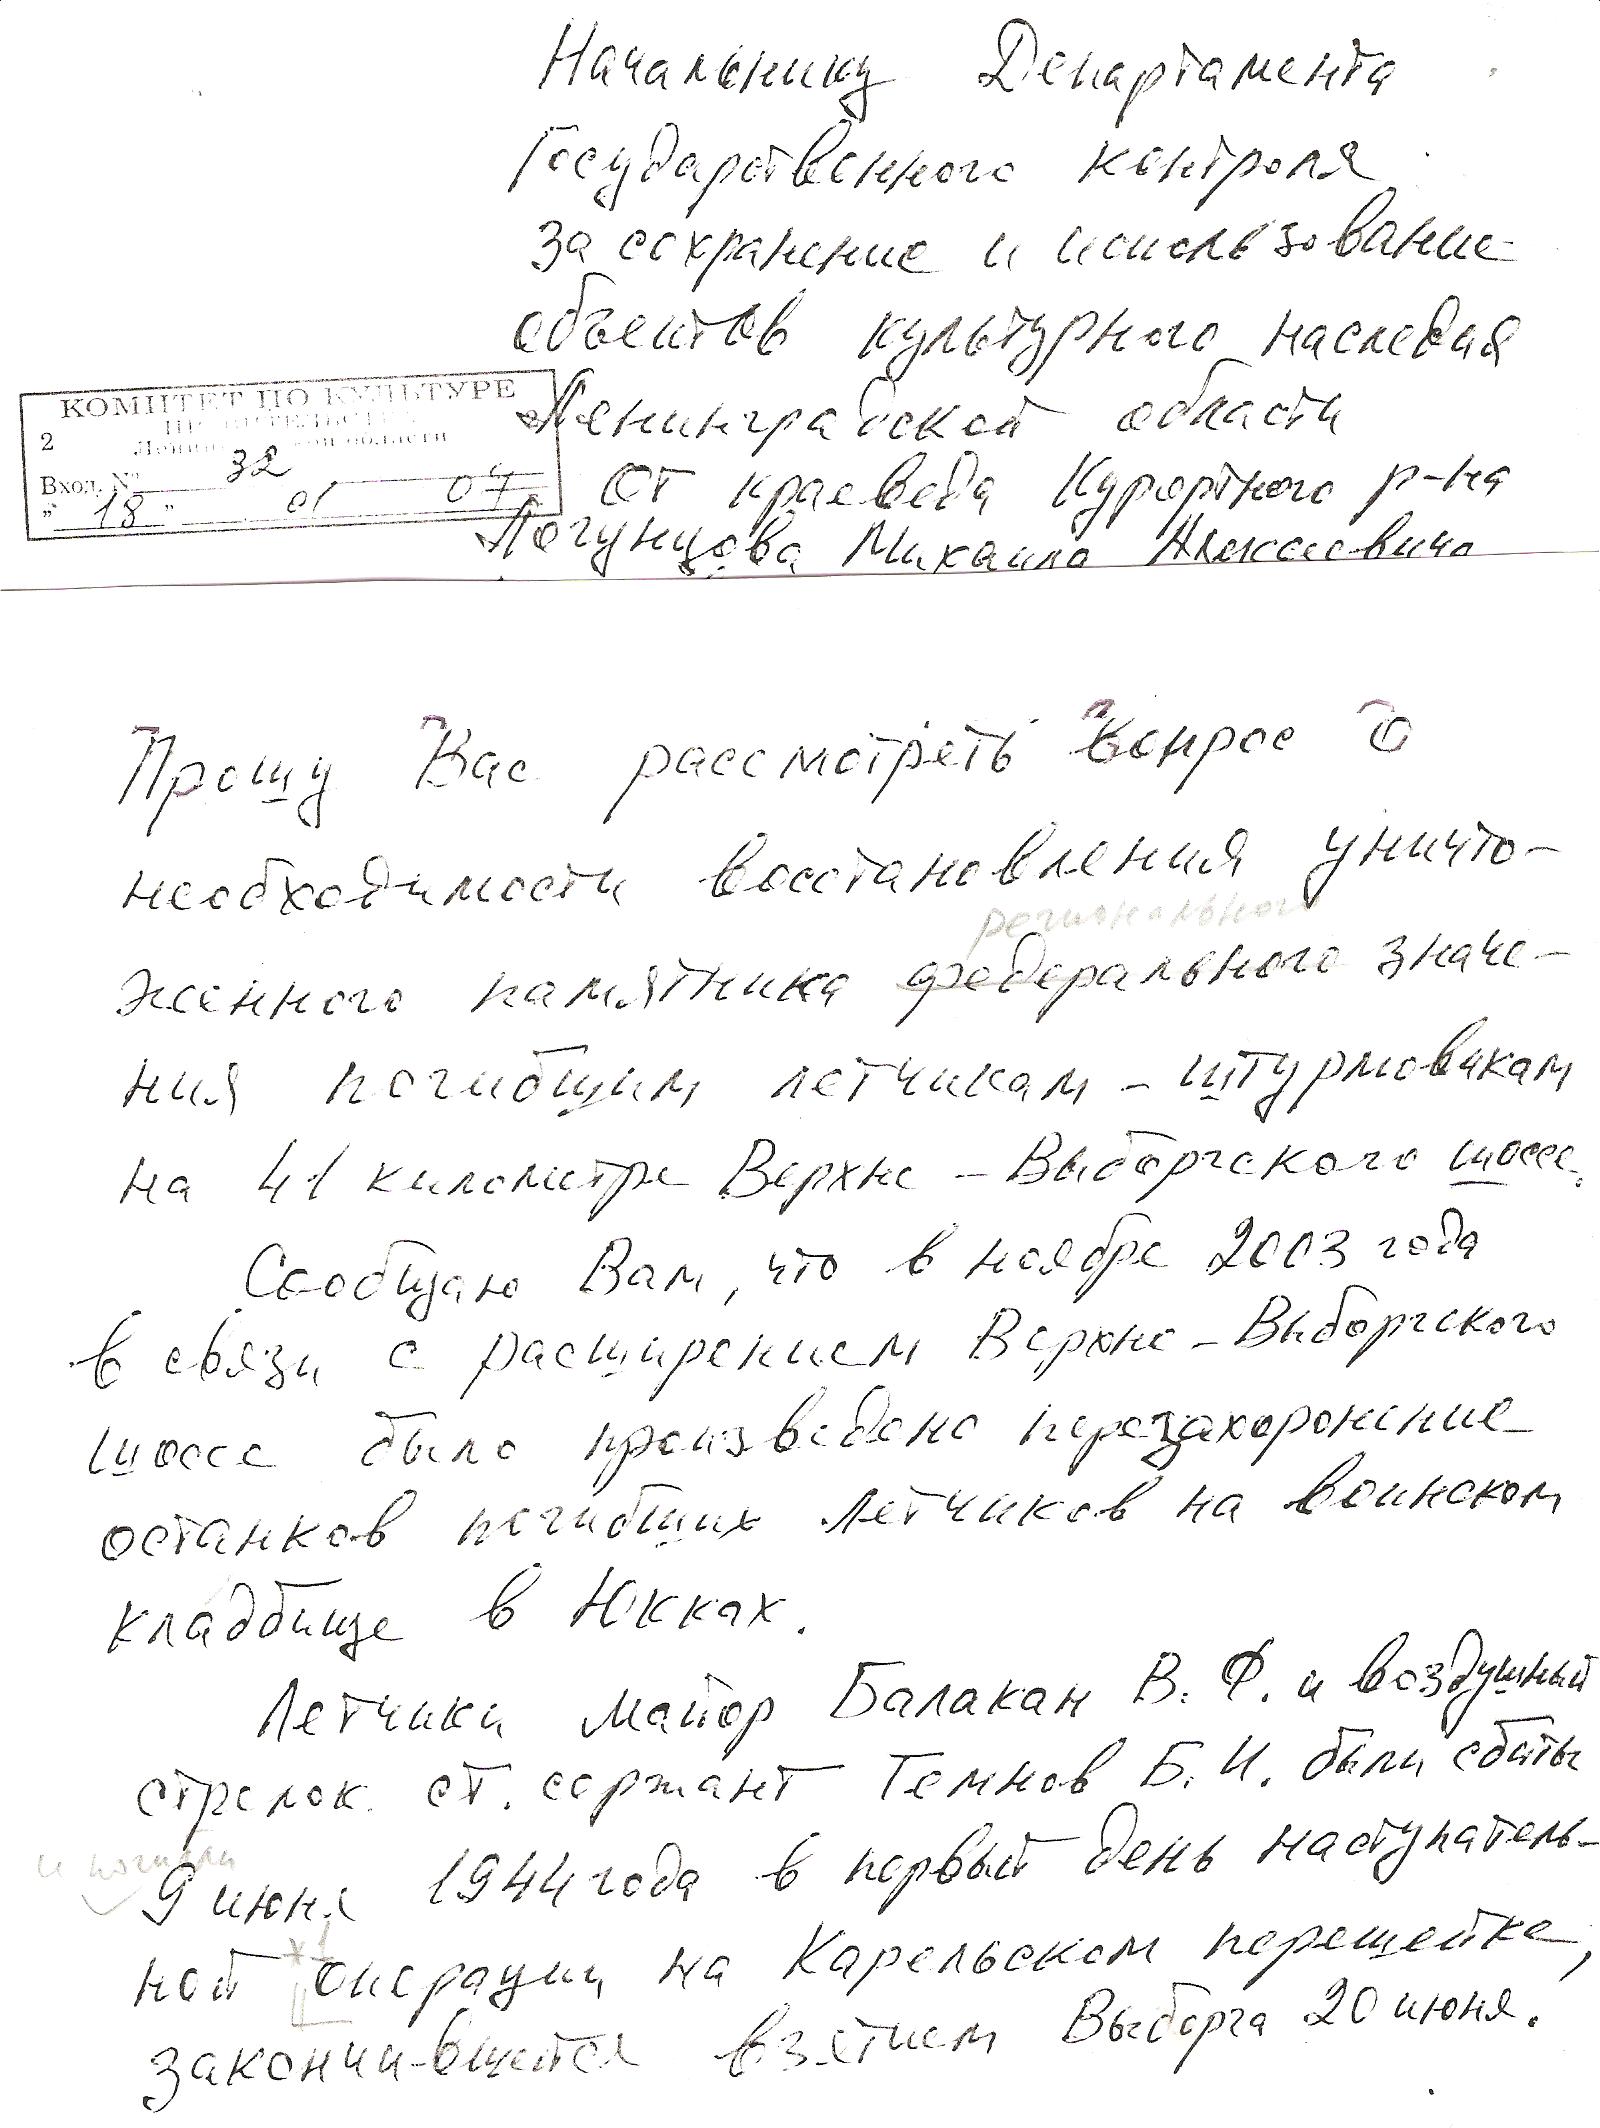 Начальнику Департамента
Государственного контроля
за сохранение и использование
объектов культурного наследия
Ленинградской области
КОМИТЕТ ПО КУЛЬТУРЕ
2
Вход. № 32
" 18 " 01 04
От краеведа Курортного р-на
Логунцова Михаила Алексеевича
Прошу Вас рассмотреть вопрос о
необходимости восстановления уничто-
регионального
женного памятника федерального значе-
ния погибшим летчикам - штурмовикам
на 41 километре Верхне - Выборгского шоссе.
Сообщаю Вам, что в ноябре 2003 года
в связи с расширением Верхне - Выборгского
шоссе было произведено перезахоронение
останков погибших летчиков на воинском
кладбище в Юкках.
Летчики майор Балакан В. Ф. и воздушный
стрелок ст. сержант Темнов Б. И. были сбиты
и погибли
9 июня 1944 года в первый день наступатель-
ной операции на Карельском перешейке,
закончившейся взятием Выборга 20 июня.